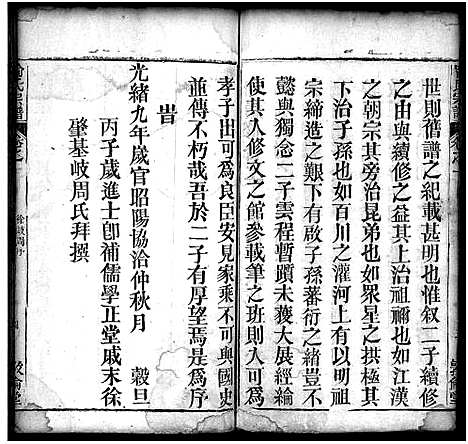 世則舊譜之紀載甚明也惟叙二子續修
之由與續修之益其上治祖禰也如江漢
之朝宗其旁治昆弟也如眾星之拱北其
下治子孫也如百川之灌河上有以明祖
宗繼述之功下有以啟子孫蕃衍之緒豈不
懿與獨念二子雲程暫頓未獲大展經綸
使其入文史之館參載筆之班則入可為
孝子出可為良臣安見家乘不可與國史
並傳不朽哉吾於二子有厚望焉是為序
旹
光緒九年歲官昭陽協洽仲秋月 榖旦
丙子歲進士即補儒學正堂戚末徐
肇基岐周氏拜撰
徐岐周序
四